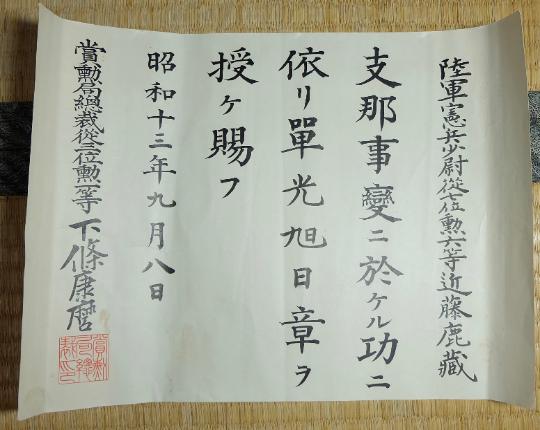 陸軍憲兵少尉從七位勲六等近藤鹿藏
支那事變ニ於ケル功ニ
依リ單光旭日章ヲ
授ケ賜フ
昭和十三年九月八日
賞勲局總裁從三位勲一等下條康麿
賞勲局總裁印